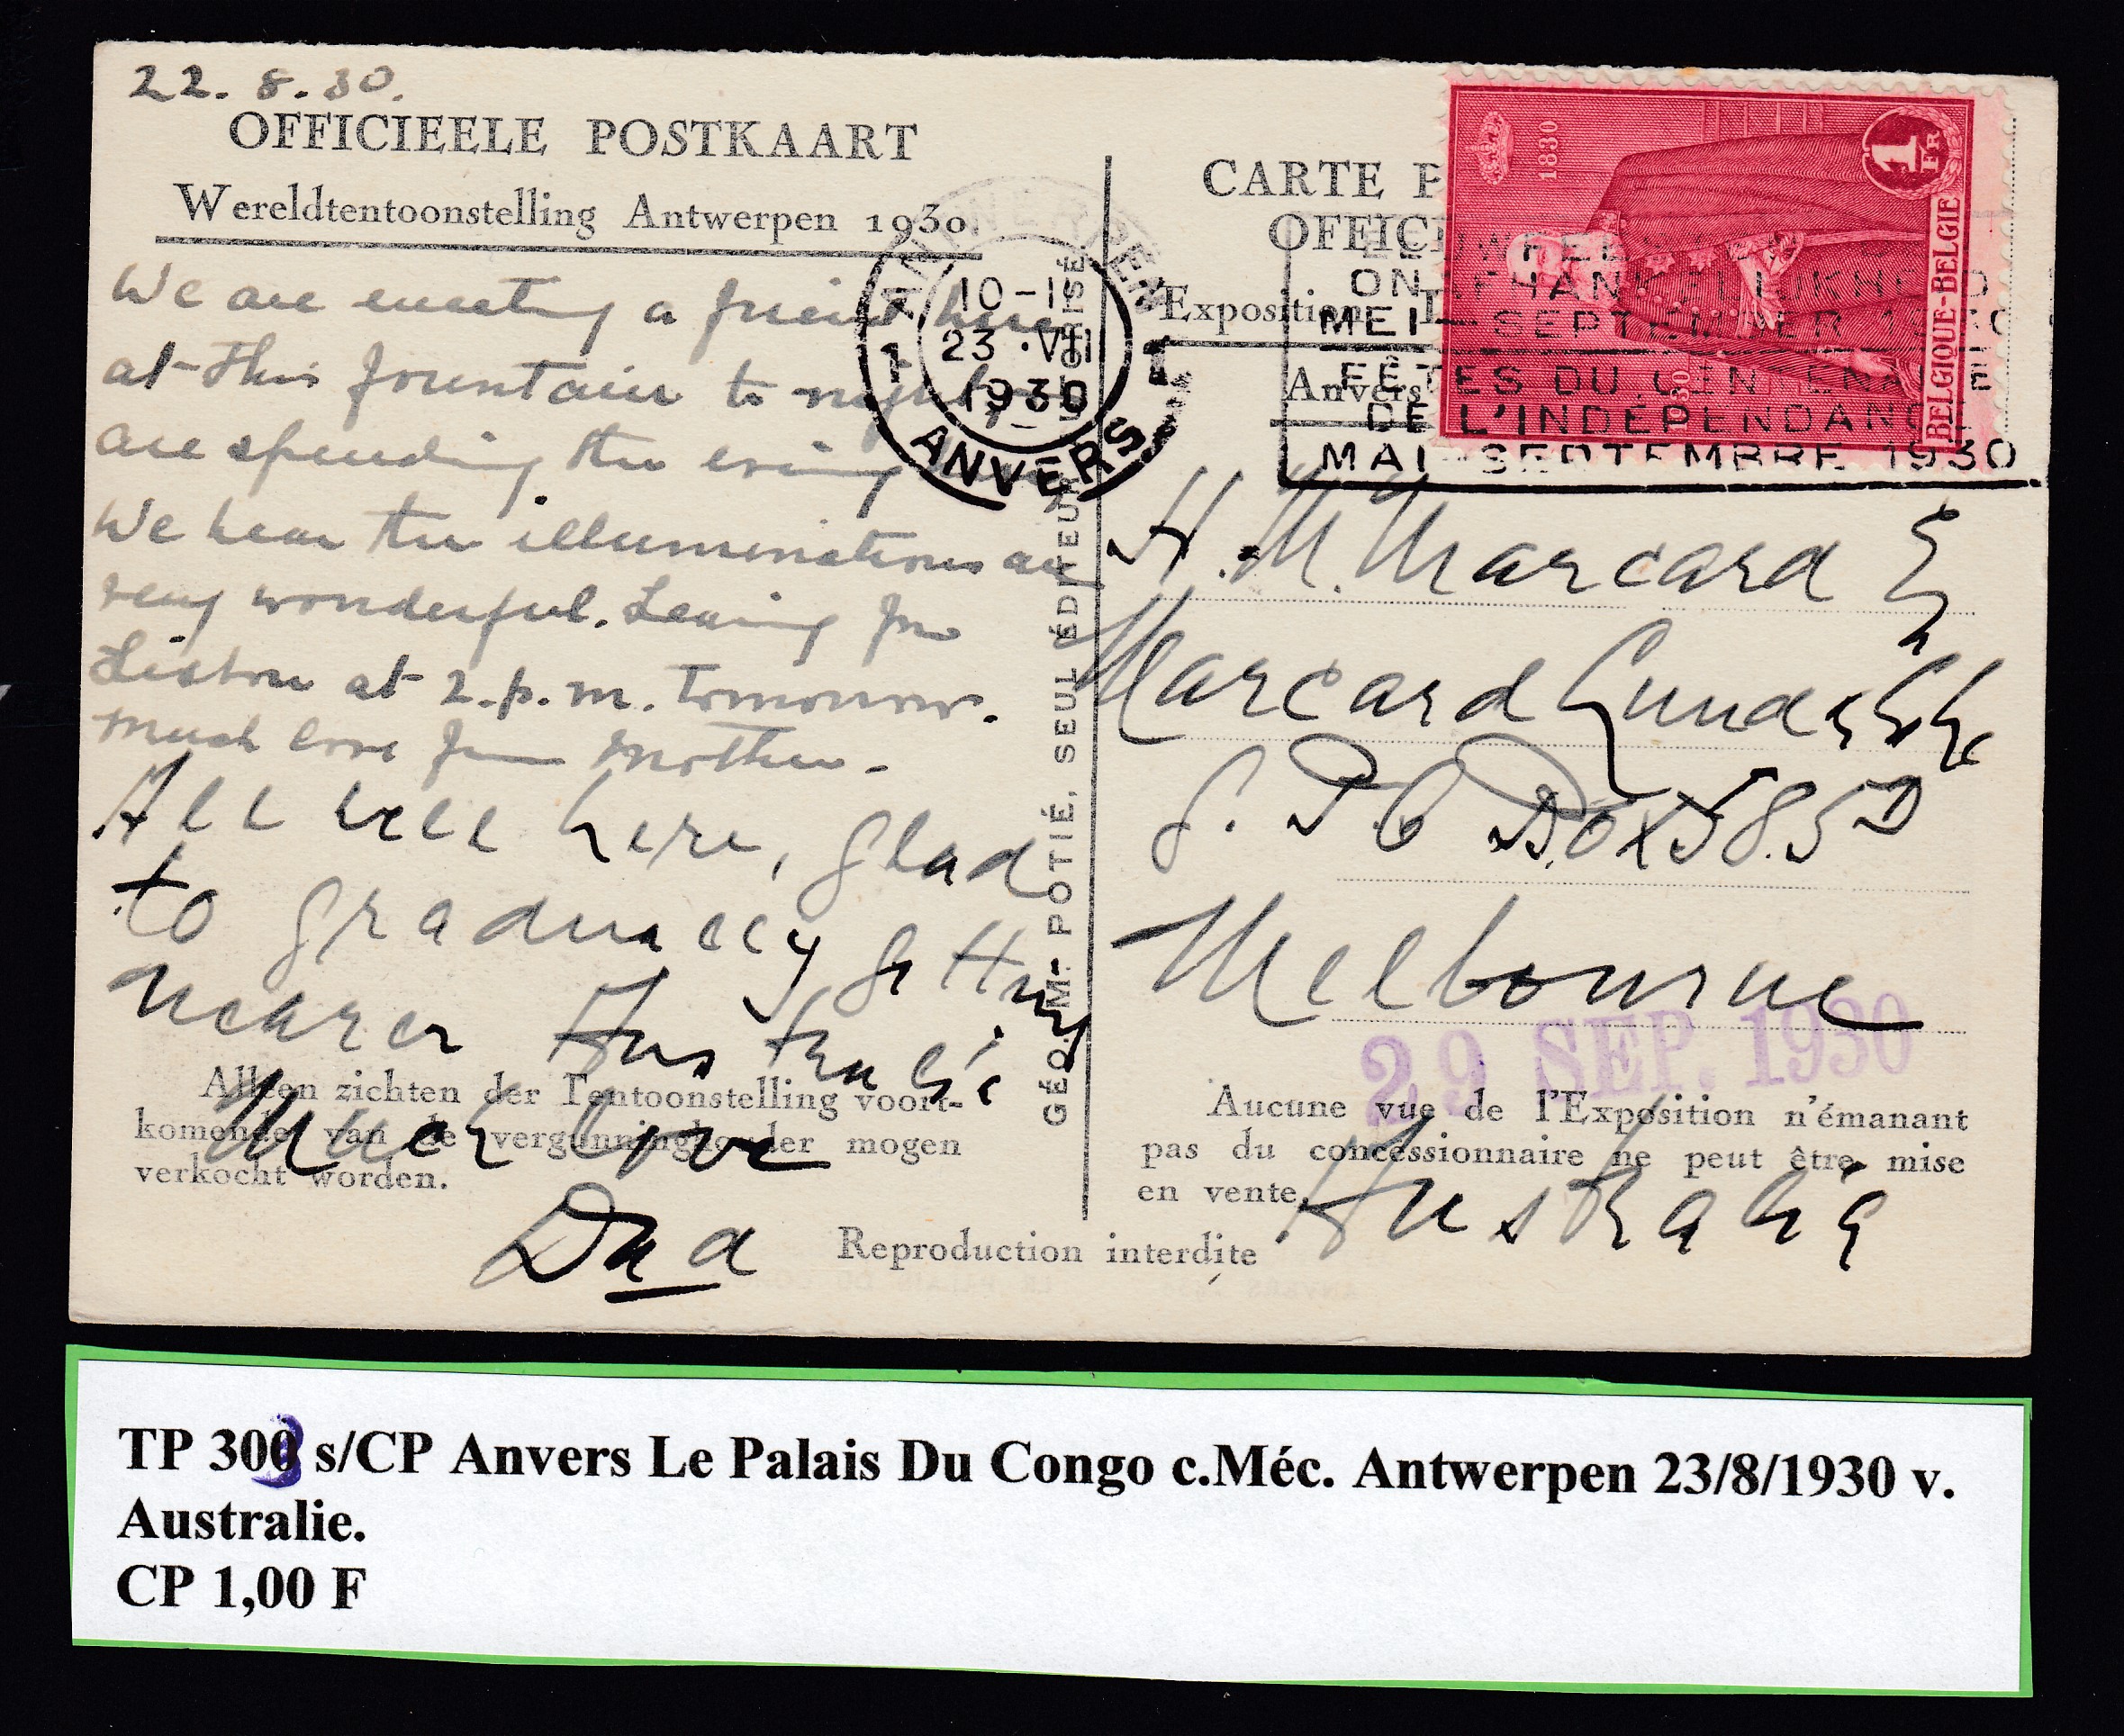 22. 8. 30.
OFFICIEELE POSTKAART
Wereldtentoonstelling Antwerpen 1930
We are meeting a friend here
at this fountain to night,
are spending the evening
We hear the illuminations are
very wonderful. Leaving for
Lisbon at 2.p.m. tomorrow.
much love from Mother.
All well here, glad
to gradually getting
nearer Australia
Much love
Dad
Alleen zichten der Tentoonstelling voort-
komende van de vergunninghouder mogen
verkocht worden.
GÉO. M. POTIÉ, SEUL ÉDITEUR
ANTWERPEN
10-11
23 ·VIII
1930
1 1
ANVERS
CARTE P
OFFICI
Exposition I
Anvers
ONAFHANKELIJKHEID
MEI - SEPTEMBER 1930
FÊTES DU CENTENAIRE
DE L'INDÉPENDANCE
MAI - SEPTEMBRE 1930
1830
1930
1 FR
BELGIQUE-BELGIE
H. M. Marcard
Marcard
G. P. O Box 585 D
Melbourne
29 SEP. 1930
Australia
Aucune vue de l'Exposition n'émanant
pas du concessionnaire ne peut être mise
en vente.
Reproduction interdite
TP 303 s/CP Anvers Le Palais Du Congo c.Méc. Antwerpen 23/8/1930 v.
Australie.
CP 1,00 F